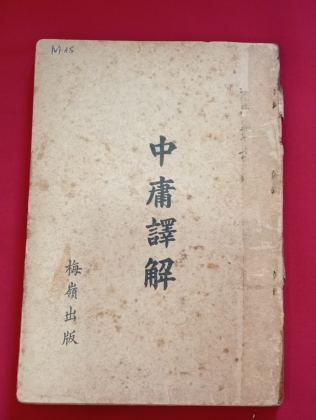 M·15
中庸譯解
梅嶺出版